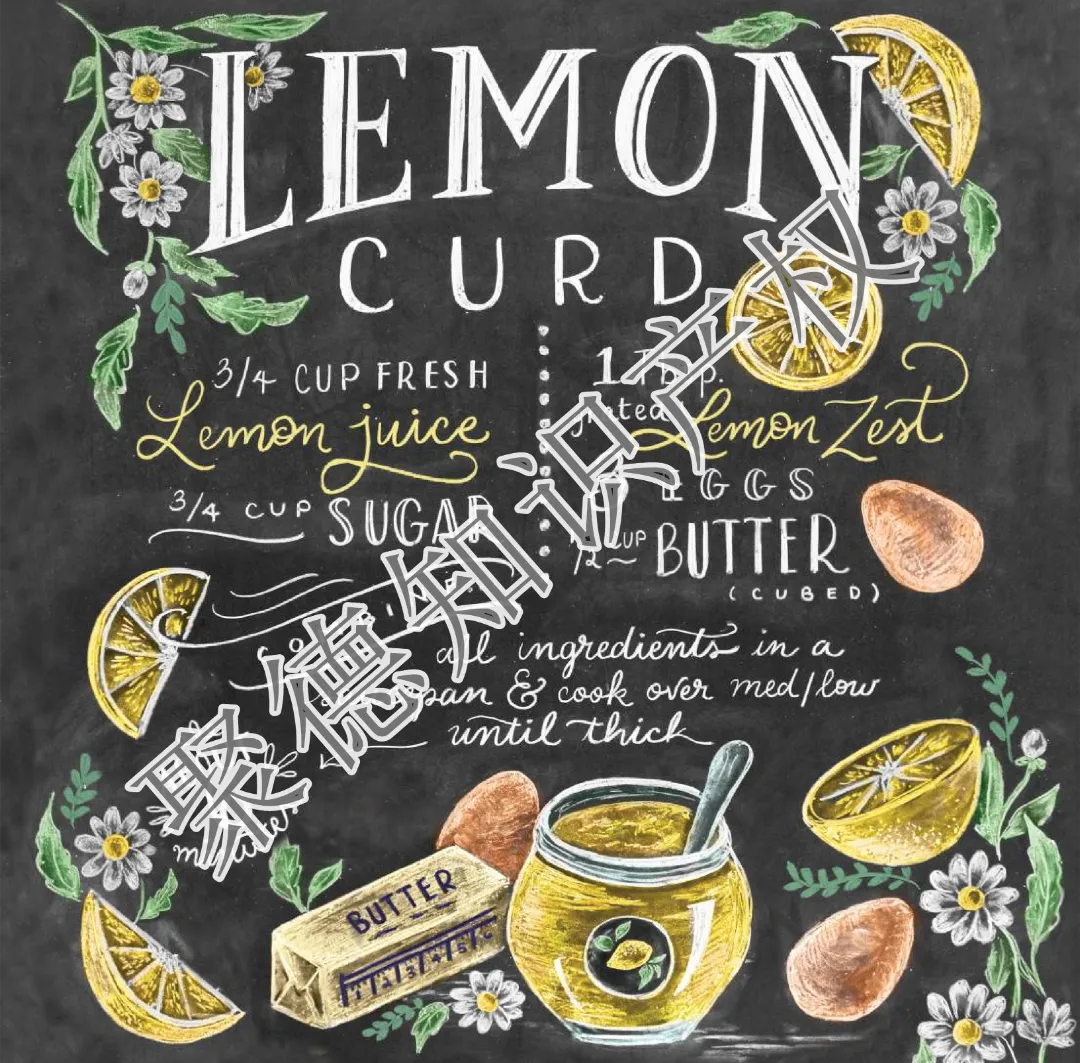 LEMON
CURD
3/4 CUP FRESH
Lemon juice
3/4 CUP SUGAR
1 Tbsp.
grated Lemon Zest
EGGS
1/2 CUP BUTTER
(CUBED)
all ingredients in a
pan & cook over med/low
until thick
BUTTER
聚德知识产权